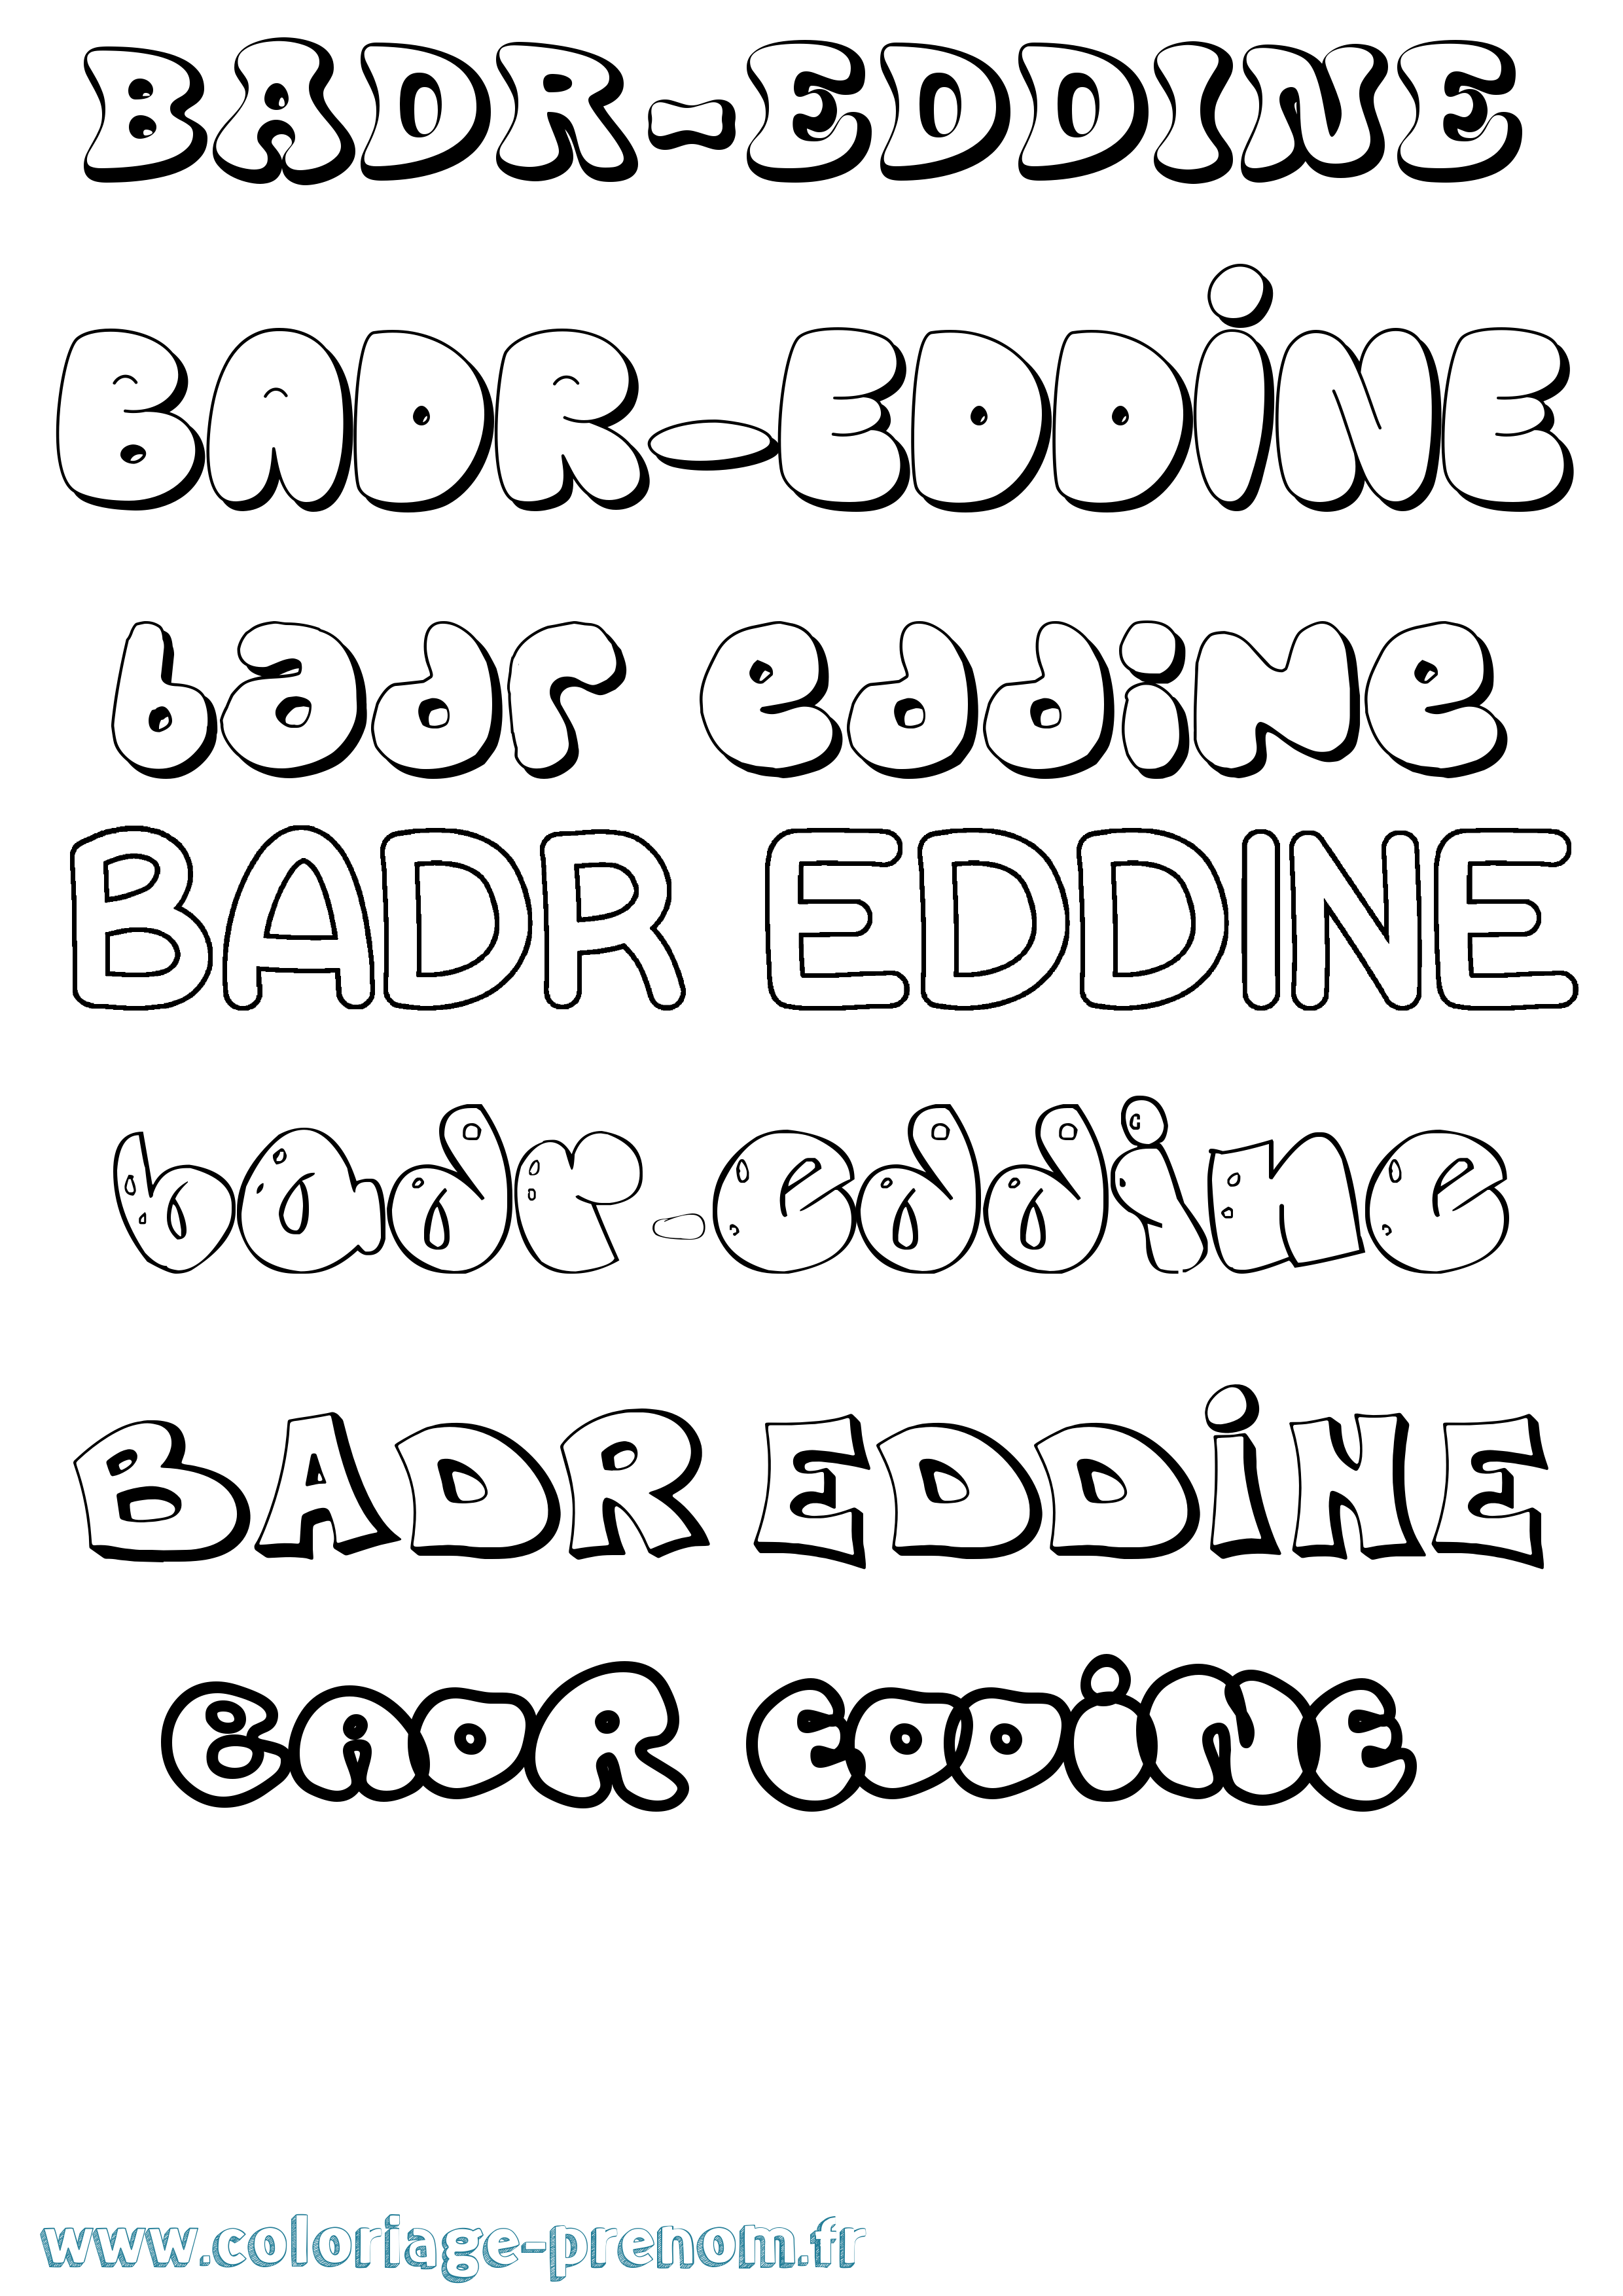 BADR-EDDINE
BADR-EDDiNE
badr eddine
BADR EDDINE
badr-eddine
BADR EDDiNE
BADR EDDiNE
www.coloriage-prenom.fr